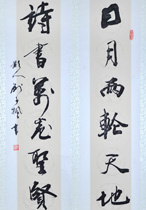 日月兩輪天地
詩書萬卷聖賢